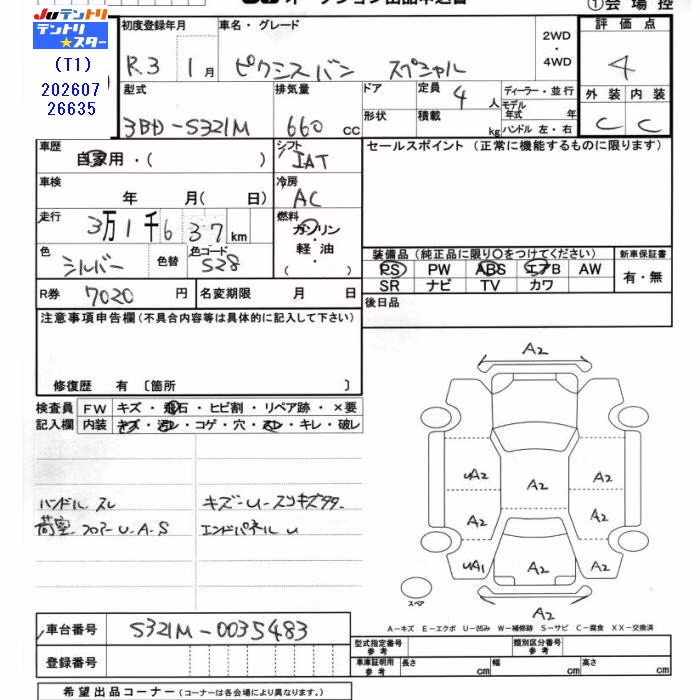 JUテントリ
オークション出品申込書
①会場控
テントリ★スター
(T1)
202607
26635
初度登録年月
R3 1月
車名・グレード
ピクシスバン スペシャル
2WD・4WD
評価点
4
型式
3BD-S321M
排気量
660 cc
ドア
形状
定員
4人
積載
kg
ディーラー・並行
モデル年式 年
ハンドル 左・右
外装 内装
C C
車歴
自家用・( )
シフト
IAT
セールスポイント(正常に機能するものに限ります)
車検
年 月( 日)
冷房
AC
走行
3万1千637km
燃料
ガソリン・軽油・
色
シルバー
色替
色コード
S28
装備品(純正品に限り〇をつけてください)
新車保証書
PS PW ABS エアB AW
有・無
SR ナビ TV カワ
R券 7020円
名変期限 月 日
後日品
注意事項申告欄(不具合内容等は具体的に記入して下さい)
修復歴 有〔箇所 〕
検査員記入欄
FW キズ・飛石・ヒビ割・リペア跡・×要
内装 キズ・汚レ・コゲ・穴・スレ・キレ・破レ
ハンドル スレ
キズ-U-スリキズタタ
荷室 フロアーU-A-S
エンドパネル U
A2
A2
A2
UA2 A2 A2
A2 A2
UA1 A2 A2
A2
スペア
A2
A-キズ E-エクボ U-凹み W-補修跡 S-サビ C-腐食 XX-交換済
車台番号 S321M-0035483
登録番号
型式指定番号 参考
類別区分番号 参考
車庫証明用 参考
長さ cm
幅 cm
高さ cm
希望出品コーナー(コーナーは各会場により異なります。)